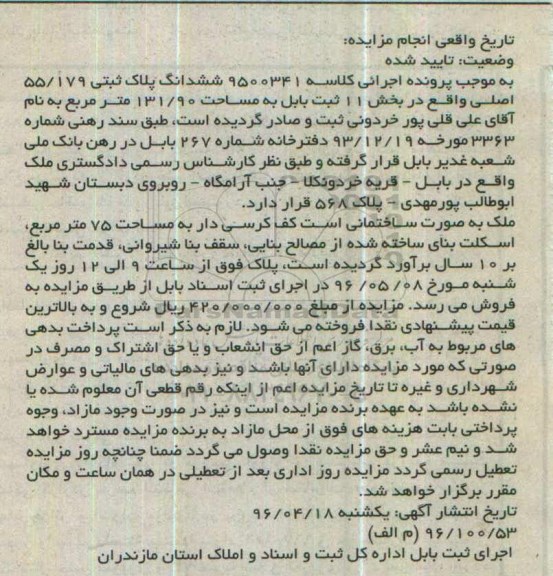 تاریخ واقعی انجام مزایده:
وضعیت: تایید شده
به موجب پرونده اجرائی کلاسه ۹۵۰۰۳۴۱ ششدانگ پلاک ثبتی ۵۵/۱۷۹
اصلی واقع در بخش ۱۱ ثبت بابل به مساحت ۱۳۱/۹۰ متر مربع به نام
آقای علی قلی پور خردونی ثبت و صادر گردیده است، طبق سند رهنی شماره
۳۳۶۳ مورخه ۹۳/۱۲/۱۹ دفترخانه شماره ۲۶۷ بابل در رهن بانک ملی
شعبه غدیر بابل قرار گرفته و طبق نظر کارشناس رسمی دادگستری ملک
واقع در بابل - قریه خردونکلا - جنب آرامگاه - روبروی دبستان شهید
ابوطالب پورمهدی - پلاک ۵۶۸ قرار دارد.
ملک به صورت ساختمانی است کف کرسی دار به مساحت ۷۵ متر مربع،
اسکلت بنای ساخته شده از مصالح بنایی، سقف بنا شیروانی، قدمت بنا بالغ
بر ۱۰ سال برآورد گردیده است، پلاک فوق از ساعت ۹ الی ۱۲ روز یک
شنبه مورخ ۹۶/۰۵/۰۸ در اجرای ثبت اسناد بابل از طریق مزایده به
فروش می رسد. مزایده از مبلغ ۴۲۰/۰۰۰/۰۰۰ ریال شروع و به بالاترین
قیمت پیشنهادی نقدا فروخته می شود. لازم به ذکر است پرداخت بدهی
های مربوط به آب، برق، گاز اعم از حق انشعاب و یا حق اشتراک و مصرف در
صورتی که مورد مزایده دارای آنها باشد و نیز بدهی های مالیاتی و عوارض
شهرداری و غیره تا تاریخ مزایده اعم از اینکه رقم قطعی آن معلوم شده یا
نشده باشد به عهده برنده مزایده است و نیز در صورت وجود مازاد، وجوه
پرداختی بابت هزینه های فوق از محل مازاد به برنده مزایده مسترد خواهد
شد و نیم عشر و حق مزایده نقدا وصول می گردد ضمنا چنانچه روز مزایده
تعطیل رسمی گردد مزایده روز اداری بعد از تعطیلی در همان ساعت و مکان
مقرر برگزار خواهد شد.
تاریخ انتشار آگهی: یکشنبه ۹۶/۰۴/۱۸
۹۶/۱۰۰/۵۳ (م الف)
اجرای ثبت بابل اداره کل ثبت و اسناد و املاک استان مازندران